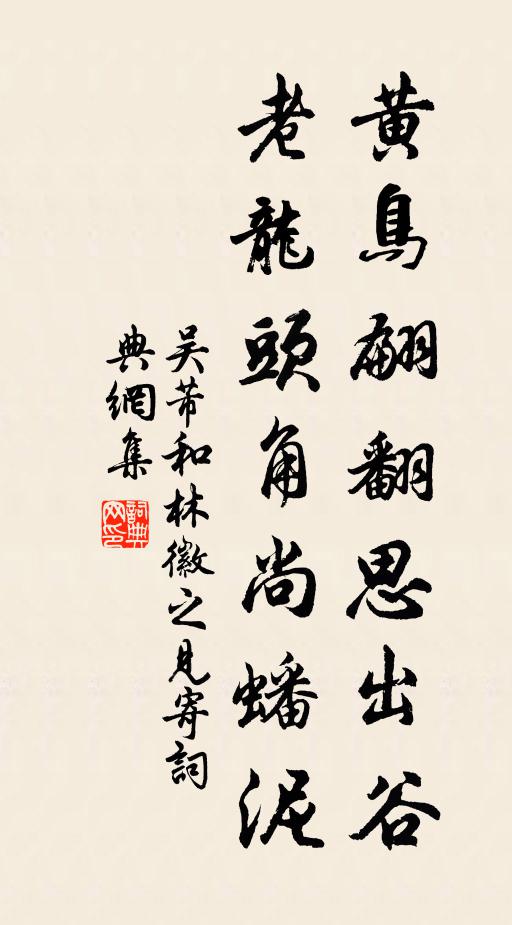 黄鳥翩翻思出谷
老龍頭角尚蟠泥
吴芾和林徽之見寄詞
典網集
詞典网印